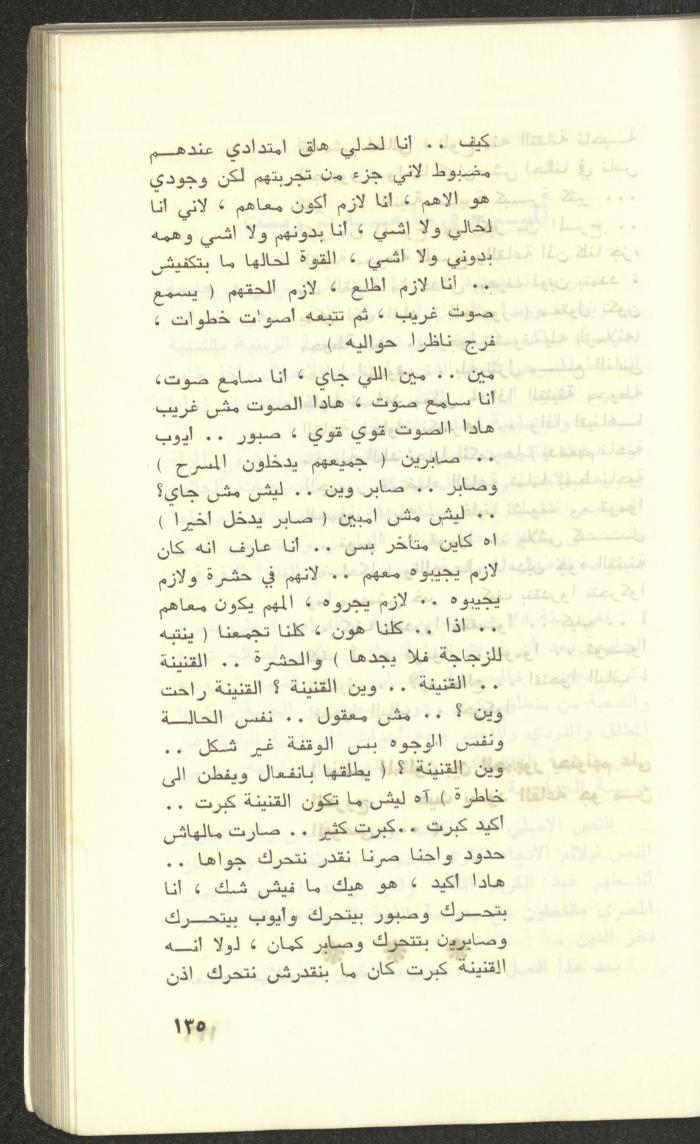 كيف .. أنا لحالي هلق امتدادي عندهـــم
مضبوط لاني جزء من تجربتهم لكن وجودي
هو الاهم ، أنا لازم أكون معاهم ، لاني أنا
لحالي ولا اشي ، أنا بدونهم ولا اشي وهمه
بدوني ولا اشي ، القوة لحالها ما بتكفيش
.. أنا لازم اطلع ، لازم الحقهم ( يسمع
صوت غريب ، ثم تتبعه أصوات خطوات ،
فرج ناظرا حواليه )
مين .. مين اللي جاي ، أنا سامع صوت،
أنا سامع صوت ، هادا الصوت مش غريب
هادا الصوت قوي قوي ، صبور .. أيوب
.. صابرين ( جميعهم يدخلون المسرح )
وصابر .. صابر وين .. ليش مش جاي؟
.. ليش مش امبين ( صابر يدخل أخيرا )
اه كاين متأخر بس .. أنا عارف انه كان
لازم يجيبوه معهم .. لانهم في حشرة ولازم
يجيبوه .. لازم يجروه ، المهم يكون معاهم
.. اذا .. كلنا هون ، كلنا تجمعنا ( ينتبه
للزجاجة فلا يجدها ) والحشرة .. القنينة
.. القنينة .. وين القنينة ؟ القنينة راحت
وين ؟ .. مش معقول .. نفس الحالـــة
ونفس الوجوه بس الوقفة غير شكل ..
وين القنينة ؟ ( يطلقها بانفعال ويفطن الى
خاطرة ) آه ليش ما تكون القنينة كبرت ..
أكيد كبرت ..كبرت كثير .. صارت مالهاش
حدود واحنا صرنا نقدر نتحرك جواها ..
هادا أكيد ، هو هيك ما فيش شك ، أنا
بتحـــرك وصبور بيتحرك وأيوب بيتحـــرك
وصابرين بتتحرك وصابر كمان ، لولا انـــه
القنينة كبرت كان ما بنقدرش نتحرك اذن
١٣٥